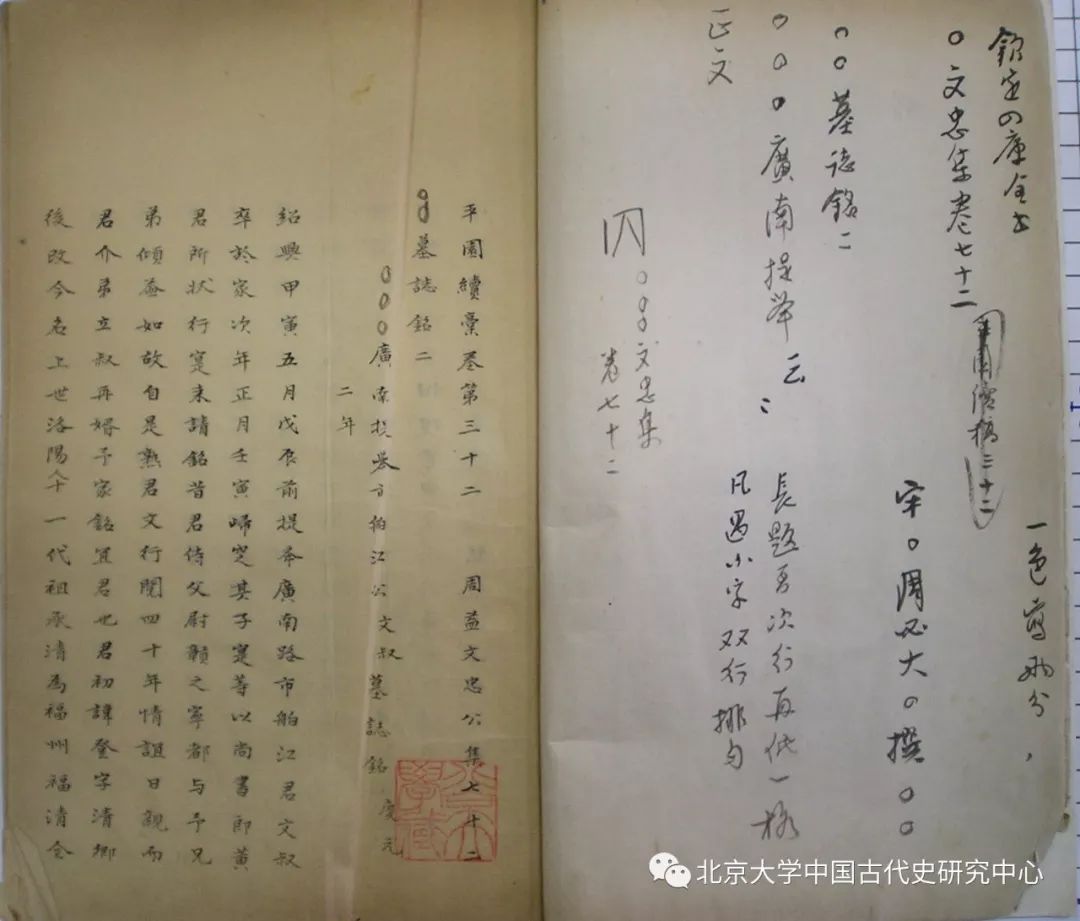 欽定四庫全书
○文忠集卷七十二
平園續稿三十二
一色寫兩分，
宋。周必大。撰○○
○○墓誌銘二
○○○廣南提举云々
長題另次行再低一格
凡遇小字双行排勻
正文
○○○文忠集
卷七十二
平園續稾卷第三十二 周益文忠公集七十二
○○墓誌銘二
○○○廣南提舉市舶江公文叔墓誌銘 慶元
二年
紹興甲寅五月戊辰前提舉廣南路市舶江君文叔
卒於家次年正月壬寅歸窆其子寔等以尚書郎黄
君所状行寔来請銘昔君侍父尉贛之寧都与予兄
弟傾盖如故自是熟君文行閱四十年情誼日親而
君介弟立叔再婚予家銘宜君也君初諱登字清卿
後改今名上世洛陽人十一代祖承清為福州福清令
北京大学中国古代史研究中心